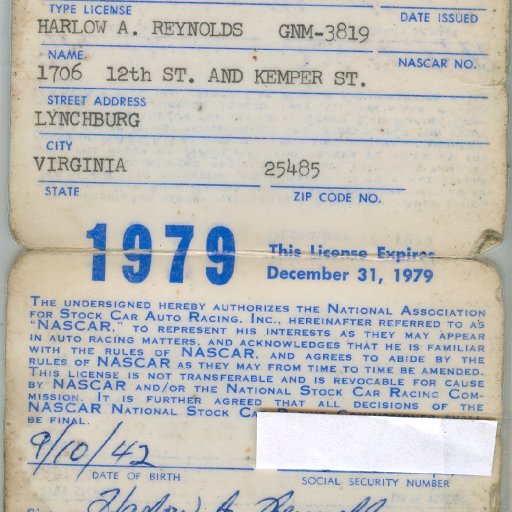 TYPE LICENSE
DATE ISSUED
HARLOW A. REYNOLDS GNM-3819
NAME
NASCAR NO.
1706 12th ST. AND KEMPER ST.
STREET ADDRESS
LYNCHBURG
CITY
VIRGINIA 25485
STATE
ZIP CODE NO.
1979
This License Expires
December 31, 1979
THE UNDERSIGNED HEREBY AUTHORIZES THE NATIONAL ASSOCIATION
FOR STOCK CAR AUTO RACING, INC., HEREINAFTER REFERRED TO AS
"NASCAR," TO REPRESENT HIS INTERESTS AS THEY MAY APPEAR
IN AUTO RACING MATTERS, AND ACKNOWLEDGES THAT HE IS FAMILIAR
WITH THE RULES OF NASCAR, AND AGREES TO ABIDE BY THE
RULES OF NASCAR AS THEY MAY FROM TIME TO TIME BE AMENDED.
THIS LICENSE IS NOT TRANSFERABLE AND IS REVOCABLE FOR CAUSE
BY NASCAR AND/OR THE NATIONAL STOCK CAR RACING COM-
MISSION. IT IS FURTHER AGREED THAT ALL DECISIONS OF THE
NASCAR NATIONAL STOCK CAR
BE FINAL.
9/10/42
DATE OF BIRTH
SOCIAL SECURITY NUMBER
Harlow A. Reynolds